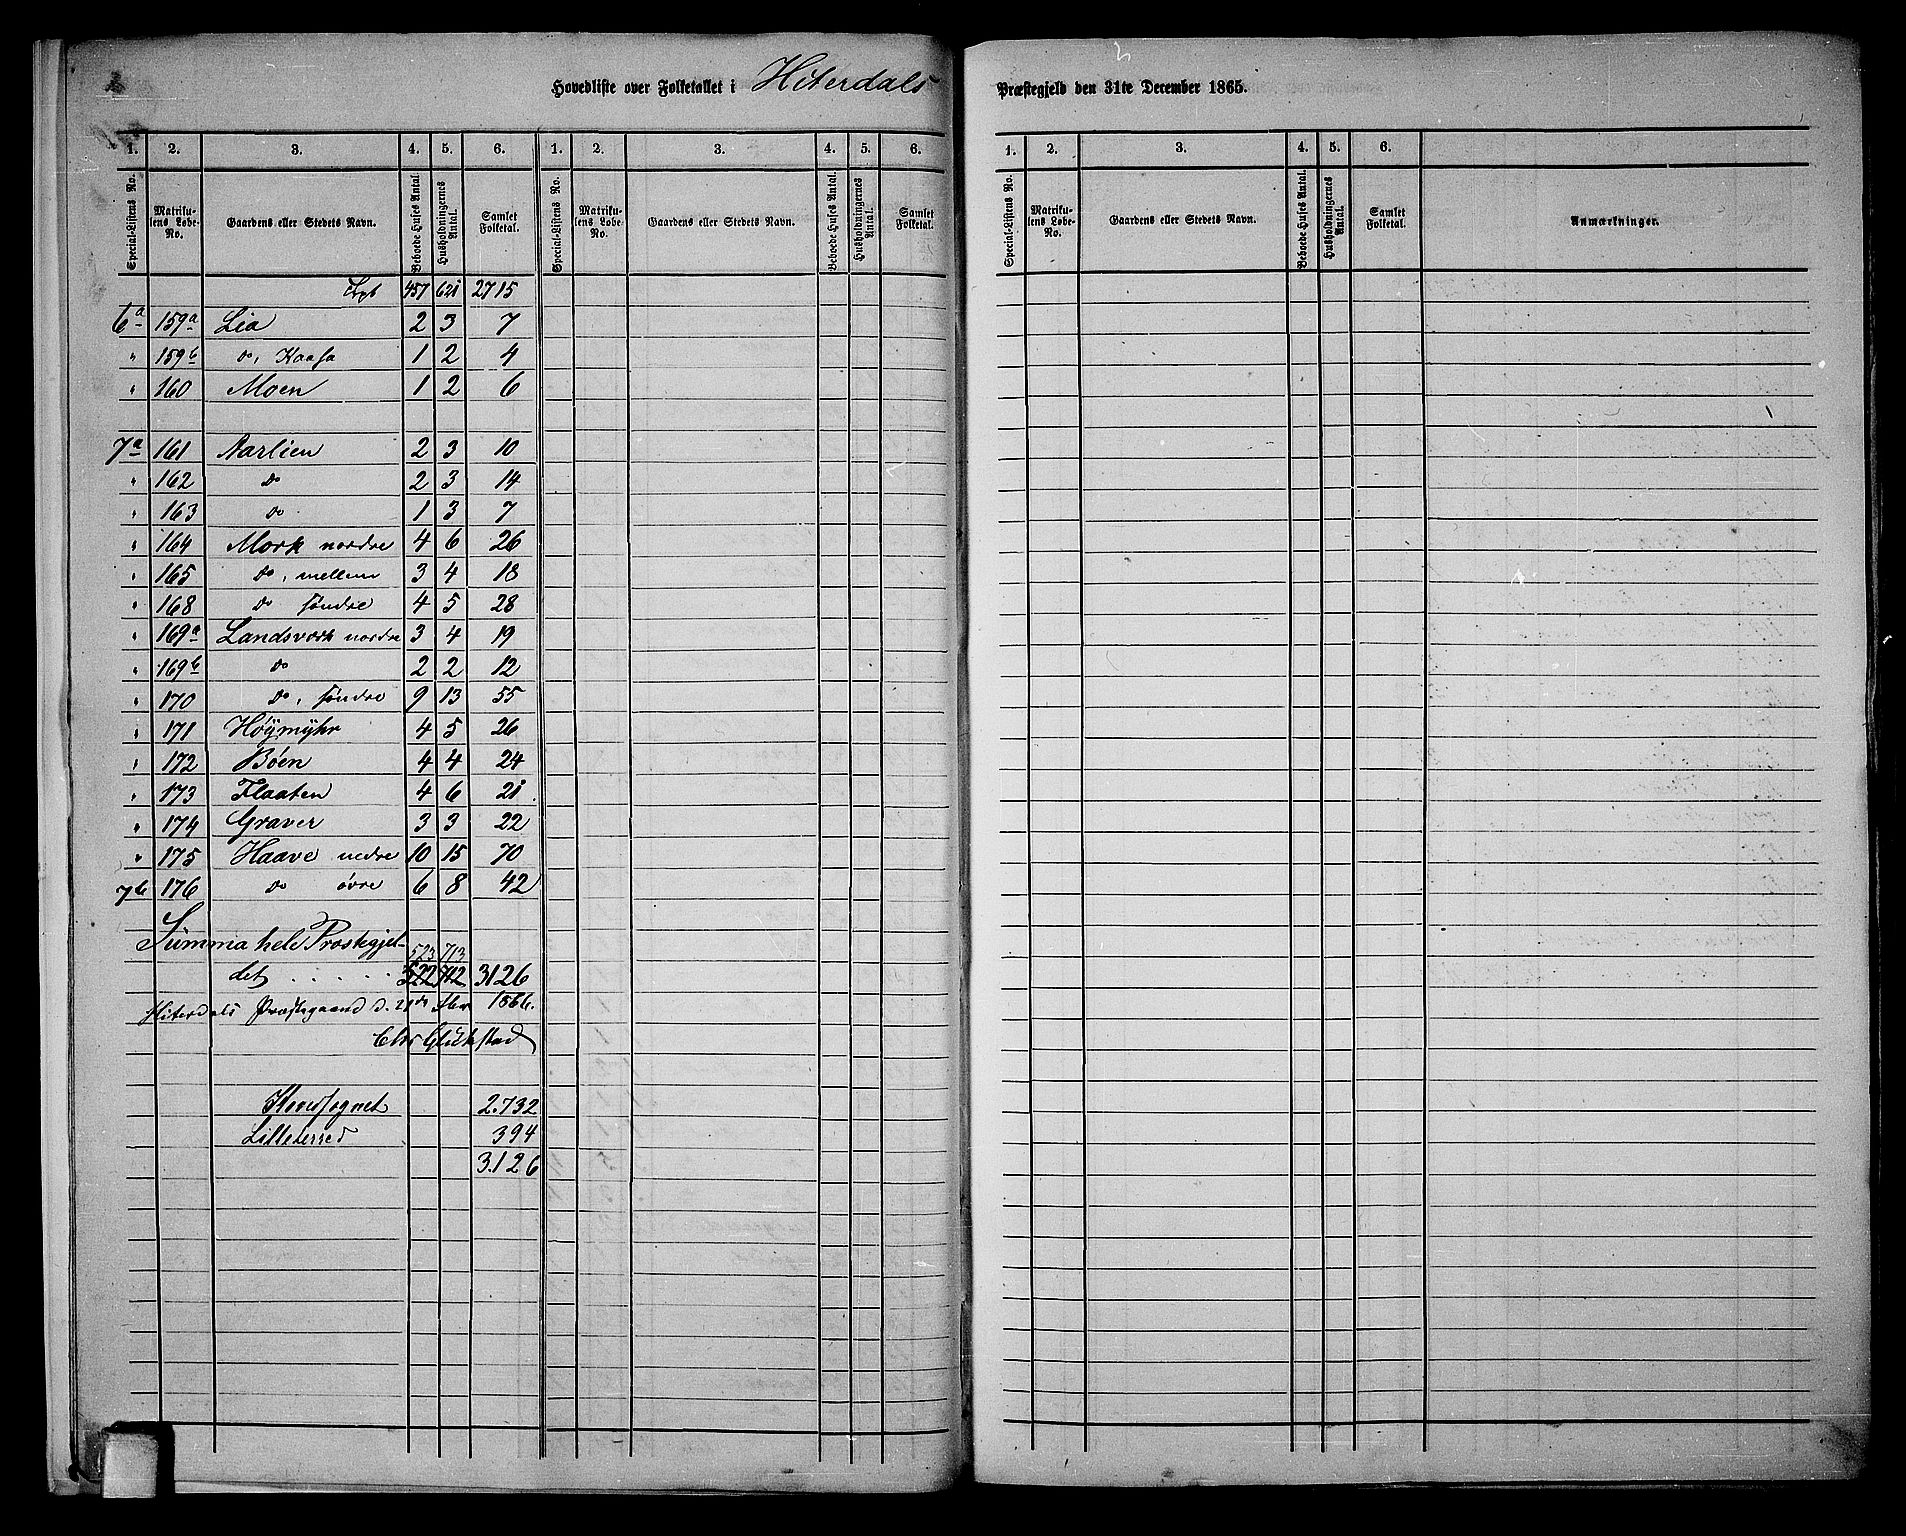 Hovedliste over Folketallet i Hiterdals Præstegjeld den 31te December 1865.
1. 2. 3. 4. 5. 6. 1. 2. 3. 4. 5. 6. 1. 2. 3. 4. 5. 6.
Special-Listens No. Matrikulens Løbe-No. Gaardens eller Stedets Navn. Beboede Huses Antal. Husholdningernes Antal. Samlet Folketal. Special-Listens No. Matrikulens Løbe-No. Gaardens eller Stedets Navn. Beboede Huses Antal. Husholdningernes Antal. Samlet Folketal. Special-Listens No. Matrikulens Løbe-No. Gaardens eller Stedets Navn. Beboede Huses Antal. Husholdningernes Antal. Samlet Folketal. Anmærkninger.
457 621 2715
6a 159a Lia 2 3 7
" 159b do, Kaasa 1 2 4
" 160 Moen 1 2 6
7a 161 Aarlien 2 3 10
" 162 do 2 3 14
" 163 do 1 3 7
" 164 Mork nordre 4 6 26
" 165 do, mellem 3 4 18
" 168 do søndre 4 5 28
" 169a Landsverk nordre 3 4 19
" 169b do 2 2 12
" 170 do, søndre 9 13 55
" 171 Høymyhr 4 5 26
" 172 Bøen 4 4 24
" 173 Flaaten 4 6 21
" 174 Graver 3 3 22
" 175 Haave nedre 10 15 70
7b 176 do øvre 6 8 42
Summa hele Præstegjel- 523 713
det . . . . . 522 712 3126
Hiterdals Præstegaard d. 21de 1866.
Chr Glückstad
Hovedsognet 2.732
Lilleherred 394
3.126